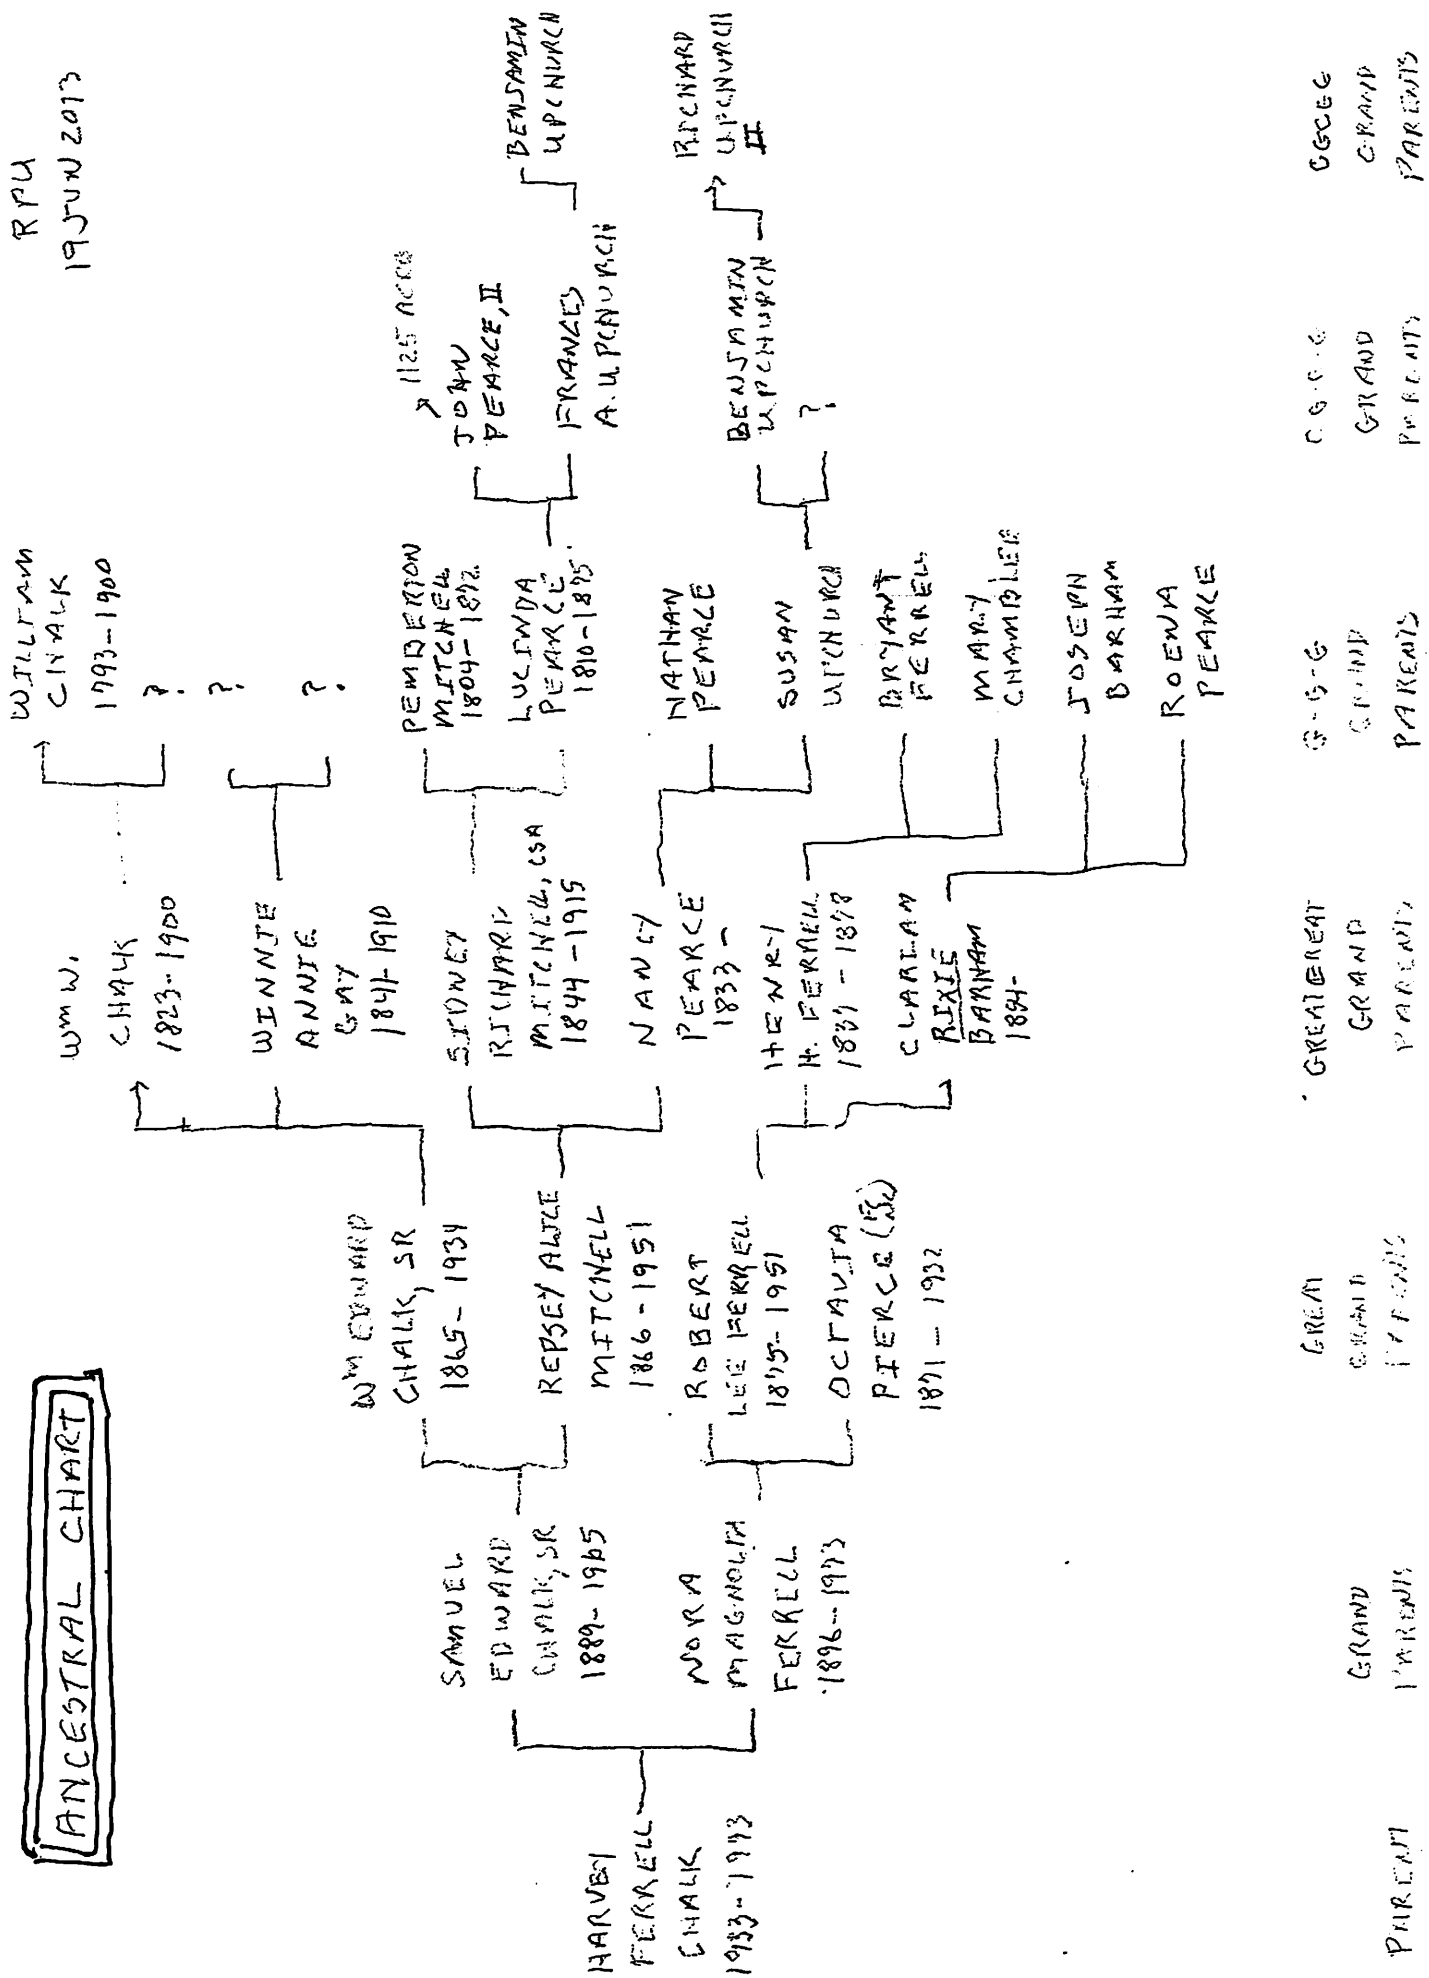 ANCESTRAL CHART
RPU
19 JUN 2013
HARVEY
FERRELL
CHALK
1933-1993
SAMUEL
EDWARD
CHALK, SR
1889-1965
NORA
MAGNOLIA
FERRELL
1896-1973
Wm EDWARD
CHALK, SR
1865-1934
REPSEY ALICE
MITCHELL
1866-1951
ROBERT
LEE FERRELL
1875-1951
OCTAVIA
PIERCE
1871-1932
WM W.
CHALK
1823-1900
WINNIE
ANNIE
GAY
1841-1910
SIDNEY
RICHARD
MITCHELL, CSA
1844-1915
NANCY
PEARCE
1833-
HENRY
H. FERRELL
1837-1878
RIXIE
BARHAM
1854-
WILLIAM
CHALK
1793-1900
?
?
?
PEMBERTON
MITCHELL
1804-1872
LUCINDA
PEARCE
1810-1875
NATHAN
PEARCE
SUSAN
UPCHURCH
BRYANT
FERRELL
MARY
CHAMBLEE
JOSEPH
BARHAM
ROENA
PEARCE
1125 ACRES
JOHN
PEARCE, II
FRANCES
A. UPCHURCH
BENJAMIN
UPCHURCH
?
BENJAMIN
UPCHURCH
RICHARD
UPCHURCH
II
PARENT
GRAND
PARENTS
GREAT
GRAND
PARENTS
GREATEREAT
GRAND
PARENTS
G-G-G
GRAND
PARENTS
G.G.G.G
GRAND
PARENTS
GGGGG
GRAND
PARENTS